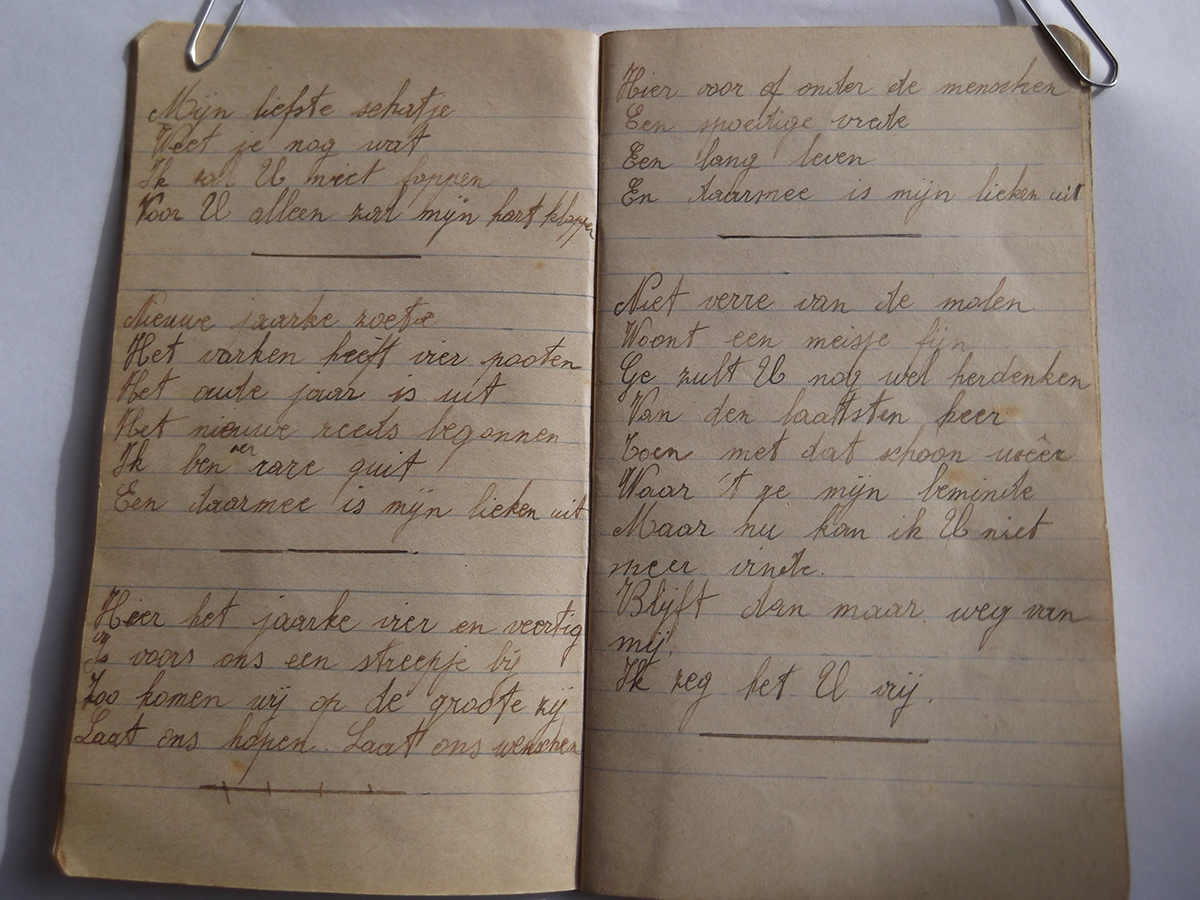 Mijn liefste schatje
Weet je nog wat
Ik zal U niet foppen
Voor U alleen zal mijn hart kloppen
Nieuwe jaarke zoete
Het varken heeft vier pooten
Het oude jaar is uit
Het nieuwe reeds begonnen
Ik ben een rare quit
Een daarmee is mijn lieken uit
Hier het jaarke vier en veertig
Is voors ons een streepje bij
Zoo komen wij op de groote zij
Laat ons hopen. Laat ons wenschen
Hier voor of onder de menschen
Een moedige vrede
Een lang leven
En daarmee is mijn lieken uit
Niet verre van de molen
Woont een meisje fijn
Ge zult U nog wel herdenken
Van den laatsten keer
Toen met dat schoon weêr
Waar 't ge mijn beminde
Maar nu kan ik U niet
meer vinde.
Blijft dan maar weg van
mij,
Ik zeg het U vrij.